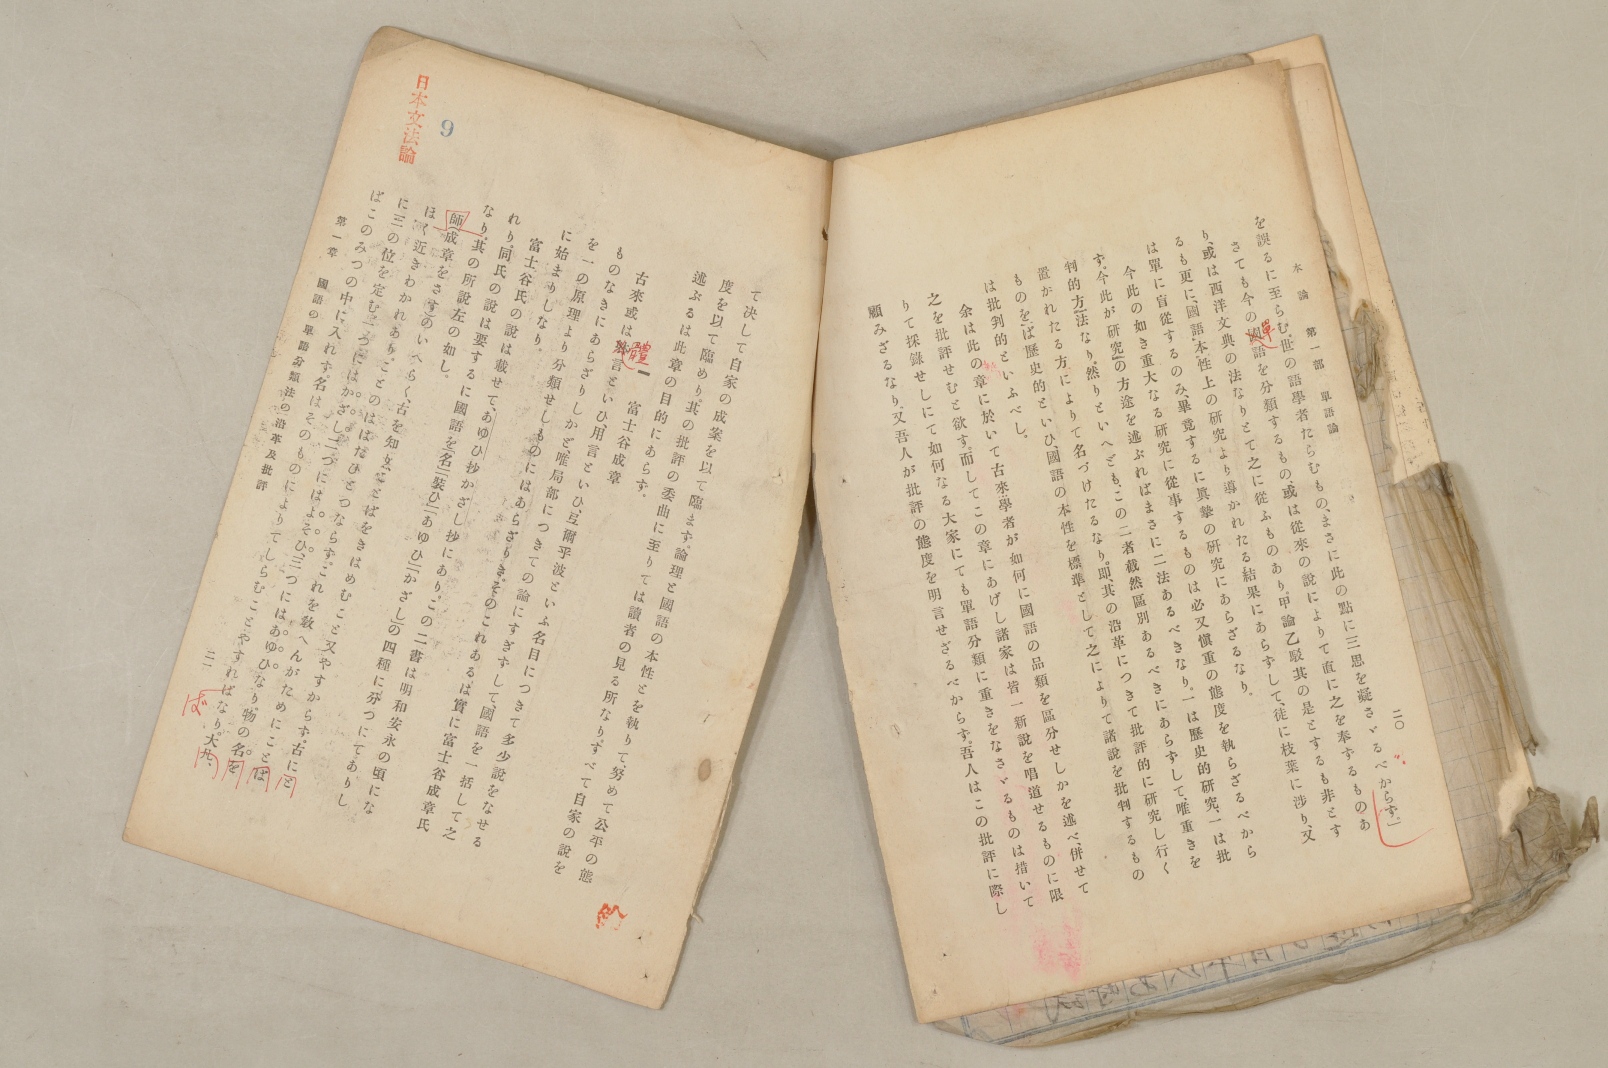 本論　第一部　單語論
二〇
を誤るに至らむ。世の語學者たらむもの、まさに此の點に三思を凝さゞるべからず。」
さても今の國語を分類するもの、或は從來の說によりて直に之を奉するものあ
單
り、或は西洋文典の法なりとて之に從ふものあり。甲論乙駁其の是とするも非とす
るも更に國語本性上の研究より導かれたる結果にあらずして、徒に枝葉に渉り又
は單に盲從するのみ。畢竟するに眞摯の研究にあらざるなり。
今此の如き重大なる研究に從事するものは必又愼重の態度を執らざるべから
ず。今此が研究の方途を述ぶればまさに二法あるべきなり。一は歷史的研究、一は批
判的方法なり。然りといへども、この二者截然區別あるべきにあらずして、唯重きを
置かれたる方によりて名づけたるなり。即其の沿革につきて批評的に研究し行く
ものをば歷史的といひ、國語の本性を標準として之によりて諸說を批判するもの
は批判的といふべし。
余は此の章に於いて古來學者が如何に國語の品類を區分せしかを述べ、併せて
之を批評せむと欲す。而してこの章にあげし諸家は皆一新說を唱道せるものに限
りて採錄せしにて如何なる大家にても單語分類に重きをなさゞるものは措いて
顧みざるなり。又吾人が批評の態度を明言せざるべからず。吾人はこの批評に際し
て決して自家の成案を以て臨まず。論理と國語の本性とを執りて、努めて公平の態
度を以て臨めり。其の批評の委曲に至りては讀者の見る所なり。すべて自家の說を
述ぶるは此章の目的にあらず。
一　富士谷成章
古來或は體言といひ、用言といひ、弖爾乎波といふ名目につきて多少說をなせる
體
ものなきにあらざりしかど、唯局部につきての論にすぎずして國語を一括して之
を一の原理より分類せしものにはあらざりき。そのこれあるは實に富士谷成章氏
に始まりしなり。
富士谷氏の說は載せて、あゆひ抄かざし抄にあり。この二書は明和安永の頃にな
れり。同氏の說は要するに國語を「名」「裝ひ」「あゆひ」「かざし」の四種に分つにてありし
なり。其の所說左の如し。
師(成章をさす)のいへらく古を知りことばをきはめむこと又やすからず。古にと
ほく近きわかれあり。ことのははたひとつならず。これを敎へんがためにことば
に三の位を定む。一つにはかざし二つにはよそひ三つにはあゆひなり。物の名を
ばこのみつの中に入れず。名はそのものによりてしらむことやすればなり。大凡、
ば
第一章　國語の單語分類法の沿革及批評
二一
日本文法論
9